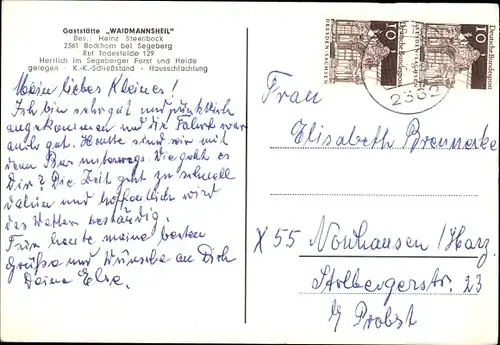 Gaststätte „WAIDMANNSHEIL"
Bes.: Heinz Steenbock
2361 Bockhorn bei Segeberg
Ruf Todesfelde 129
Herrlich im Segeberger Forst und Heide
gelegen - K.-K.-Schießstand - Hausschlachtung
Mein liebes Kleines!
Ich bin sehr gut und pünktlich
angekommen und die Fahrt war
auch gut. Heute sind wir mit
dem Bus unterwegs. Wie geht es
Dir? Die Zeit geht zu schnell
dahin und hoffentlich wird
das Wetter beständig.
Für heute meine besten
Grüße und Wünsche an Dich
Deine Else.
10
Deutsche Bundespost
DRESDEN/SACHSEN
10
Deutsche Bundespost
2362
Frau
Elisabeth Brenneske
X 55 Neuhausen/Harz
Stolbergerstr. 23
b/ Probst